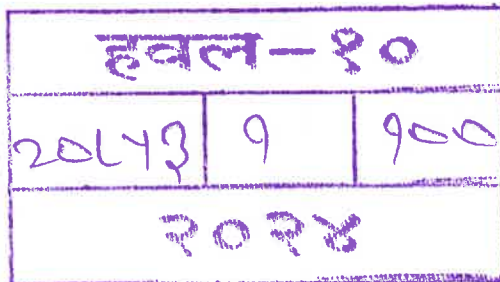 हवल-१०
२०८५३ १ १००
२०२४